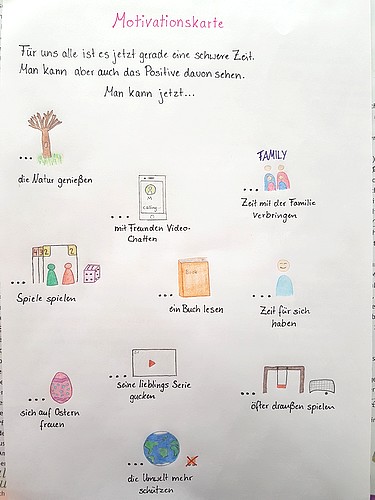 Motivationskarte
Für uns alle ist es jetzt gerade eine schwere Zeit.
Man kann aber auch das Positive davon sehen.
Man kann jetzt...
...
die Natur genießen
FAMILY
...
Zeit mit der Familie
verbringen
calling
...
mit Freunden Video-
Chatten
...
Spiele spielen
...
ein Buch lesen
...
Zeit für sich
haben
...
seine lieblings Serie
gucken
...
sich auf Ostern
freuen
...
öfter draußen spielen
...
die Umwelt mehr
schützen